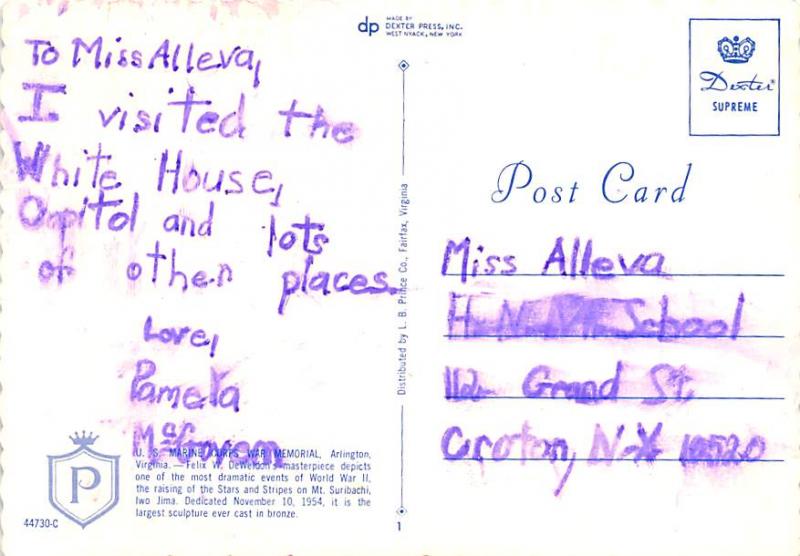 To Miss Alleva,
I visited the
White House,
Capitol and lots
of other places.
Love,
Pamela
U. S. MARINE CORPS WAR MEMORIAL, Arlington,
Virginia. — Felix W. DeWeldon's masterpiece depicts
one of the most dramatic events of World War II,
the raising of the Stars and Stripes on Mt. Suribachi,
Iwo Jima. Dedicated November 10, 1954, it is the
largest sculpture ever cast in bronze.
P
44730-C
dp
MADE BY
DEXTER PRESS, INC.
WEST NYACK, NEW YORK
Distributed by L. B. Prince Co., Fairfax, Virginia
1
Dexter®
SUPREME
Post Card
Miss Alleva
School
Grand St.
Croton, N.Y. 10520